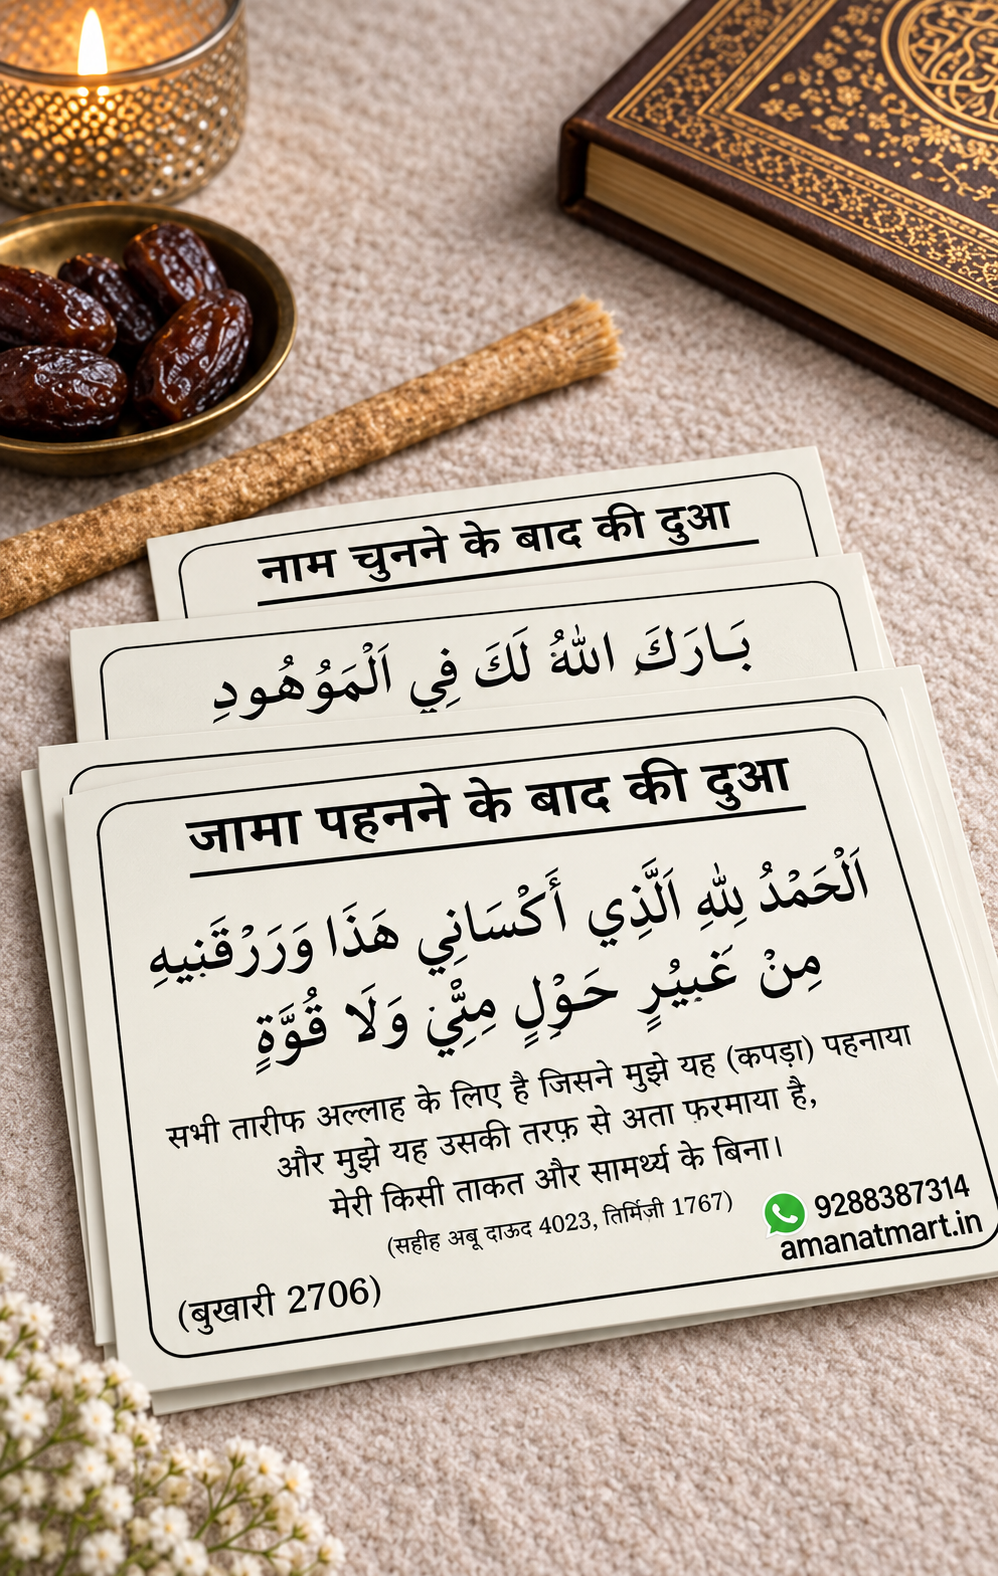 नाम चुनने के बाद की दुआ
بَارَكَ اللهُ لَكَ فِي اَلْمَوُهُودِ
जामा पहनने के बाद की दुआ
اَلْحَمْدُ لِلّٰهِ اَلَّذِي أَكْسَانِي هَذَا وَرَرْقَنِيهِ
مِنْ غَيْرِ حَوْلٍ مِنِّيْ وَلَا قُوَّةٍ
सभी तारीफ अल्लाह के लिए है जिसने मुझे यह (कपड़ा) पहनाया
और मुझे यह उसकी तरफ़ से अता फ़रमाया है,
मेरी किसी ताकत और सामर्थ्य के बिना।
(सहीह अबू दाऊद 4023, तिर्मिज़ी 1767)
9288387314
amanatmart.in
(बुखारी 2706)